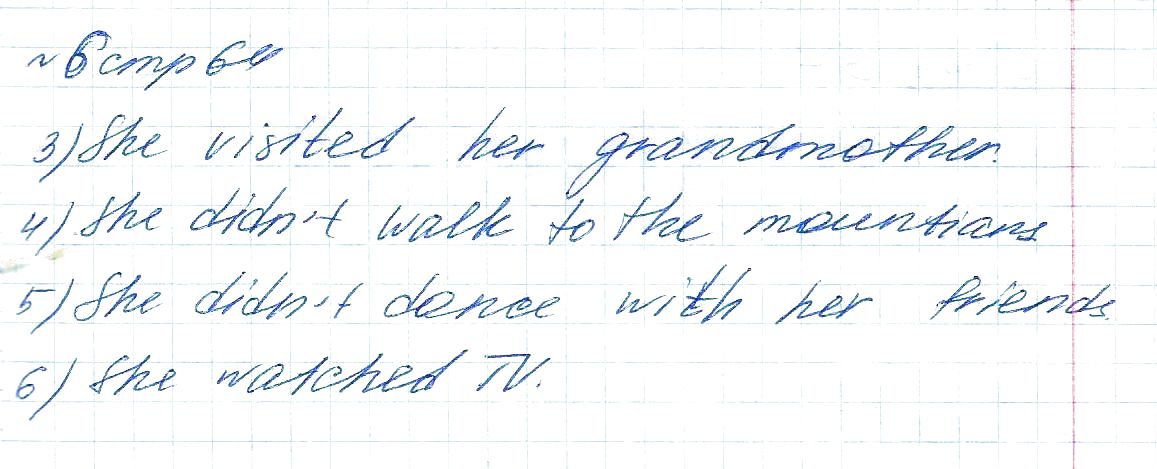 ~ 6 стр 64
3) She visited her grandmother.
4) She didn't walk to the mountians
5) She didn't dance with her friends.
6) She watched TV.